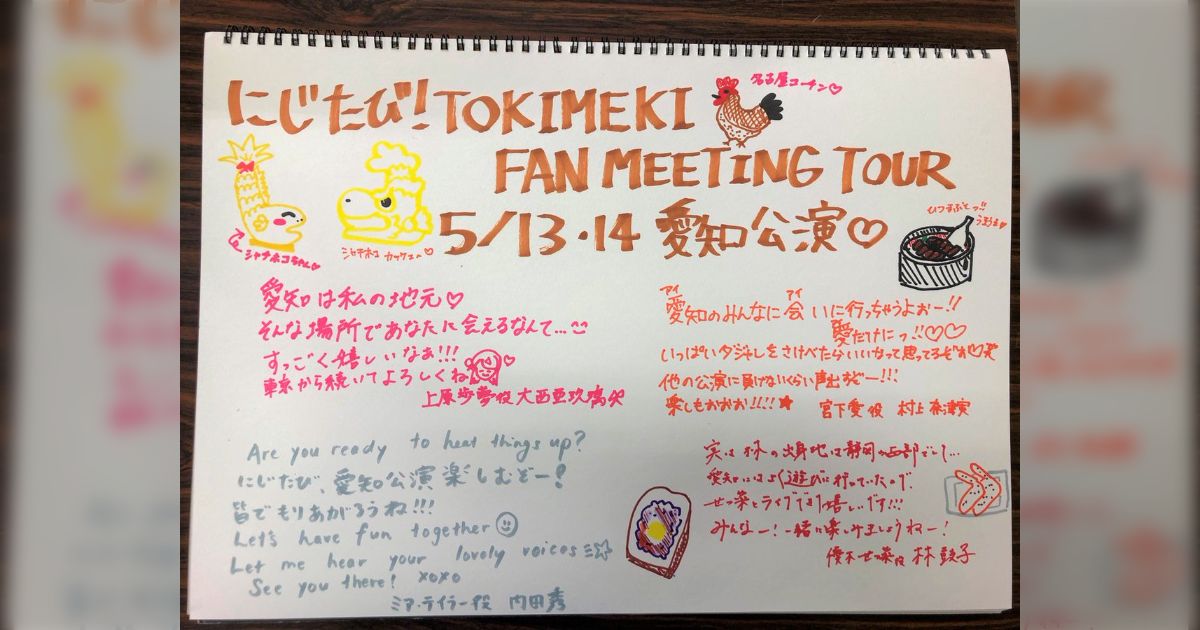 にじたび!TOKIMEKI
名古屋コーチン♡
FAN MEETING TOUR
5/13・14 愛知公演♡
シャチホコちゃん♡
シャチホコ
ひつまぶしっ!!
愛知は私の地元♡
そんな場所であなたに会えるなんて…
すっごく嬉しいなぁ!!!
東京から続いてよろしくね
上原歩夢役 大西亜玖璃
アイ アイ
愛知のみんなに会いに行っちゃうよぉー!!
愛だけにっ!!♡♡
いっぱいダジャレをさけべたらいいなって思ってるぞ
他の公演に負けないくらい声出すぞー!!!
楽しもおおお!!!!★
宮下愛役 村上奈津実
Are you ready to heat things up?
にじたび、愛知公演楽しむぞー!
皆でもりあがろうね!!!
Let's have fun together
Let me hear your lovely voices
See you there! xoxo
ミア・テイラー役 内田秀
実は林の出身地は静岡の西部でして…
愛知にはよく遊びに行っていたので、
せつ菜とライブできて嬉しいです!!!
みんなー!一緒に楽しみましょうねー!
優木せつ菜役 林鼓子